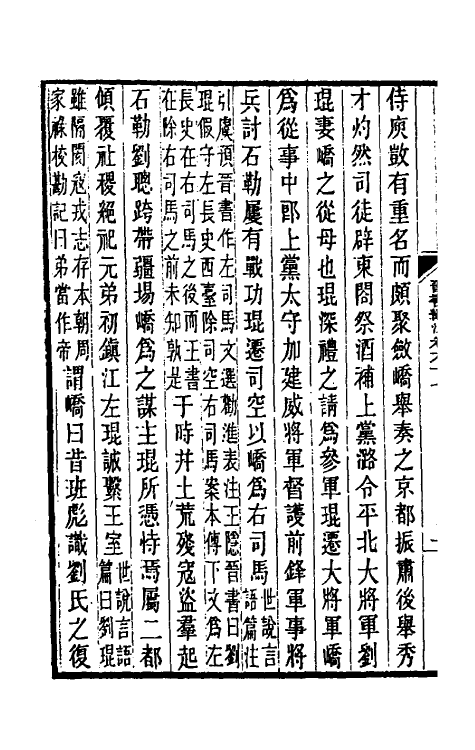 侍庾敳有重名而頗聚斂嶠舉奏之京都振肅後舉秀
才灼然司徒辟東閤祭酒補上黨潞令平北大將軍劉
琨妻嶠之從母也琨深禮之請爲參軍琨遷大將軍嶠
爲從事中郎上黨太守加建威將軍督護前鋒軍事將
兵討石勒屢有戰功琨遷司空以嶠爲右司馬世說言語篇注
引虞預晉書作左司馬文選勸進表注王隱晉書曰劉
琨假守左長史西臺除司空右司馬案本傳下文爲左
長史在右司馬之後而王書在除右司馬之前未知孰是于時并土荒殘寇盜羣起
石勒劉聰跨帶疆場嶠爲之謀主琨所憑恃焉屬二都
傾覆社稷絕祀元弟初鎮江左琨誠繫王室世說言語篇曰劉琨
雖隔閡寇戎志存本朝周家祿校勘記曰弟當作帝謂嶠曰昔班彪識劉氏之復